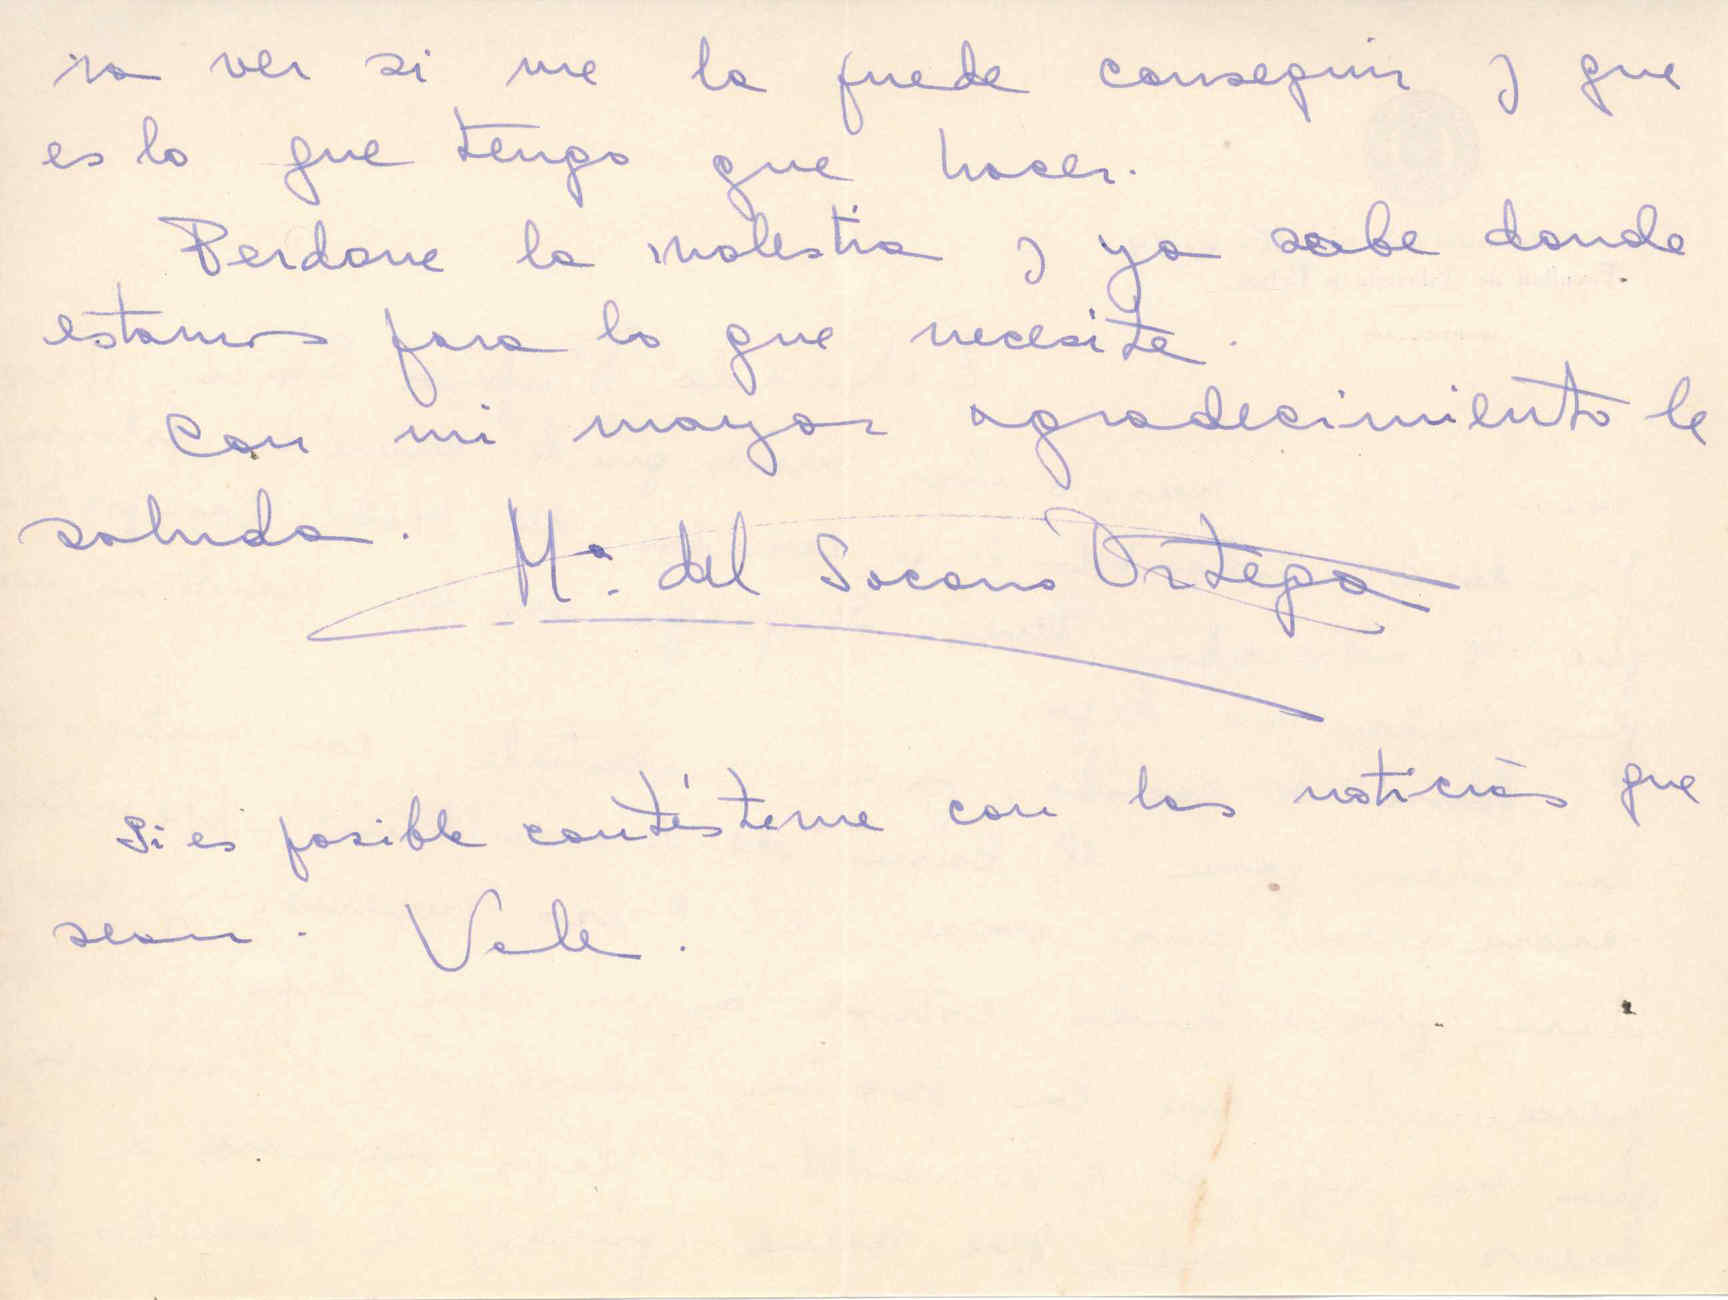 ra ver si me la puede conseguir y que
es lo que tengo que hacer.
Perdone la molestia y ya sabe donde
estamos para lo que necesite.
Con mi mayor agradecimiento le
saluda.
Mª. del Socorro Ortega
Si es posible contésteme con las noticias que
sean. Vale.